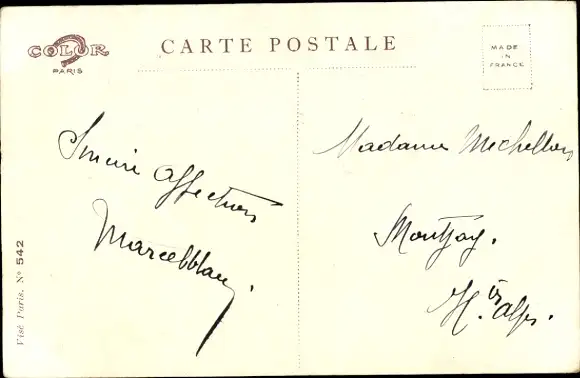 COLOR
PARIS
CARTE POSTALE
MADE
IN
FRANCE
Sincère affection
Madame Michellon
Montjay.
H.tes Alpes.
Visé Paris. N° 542